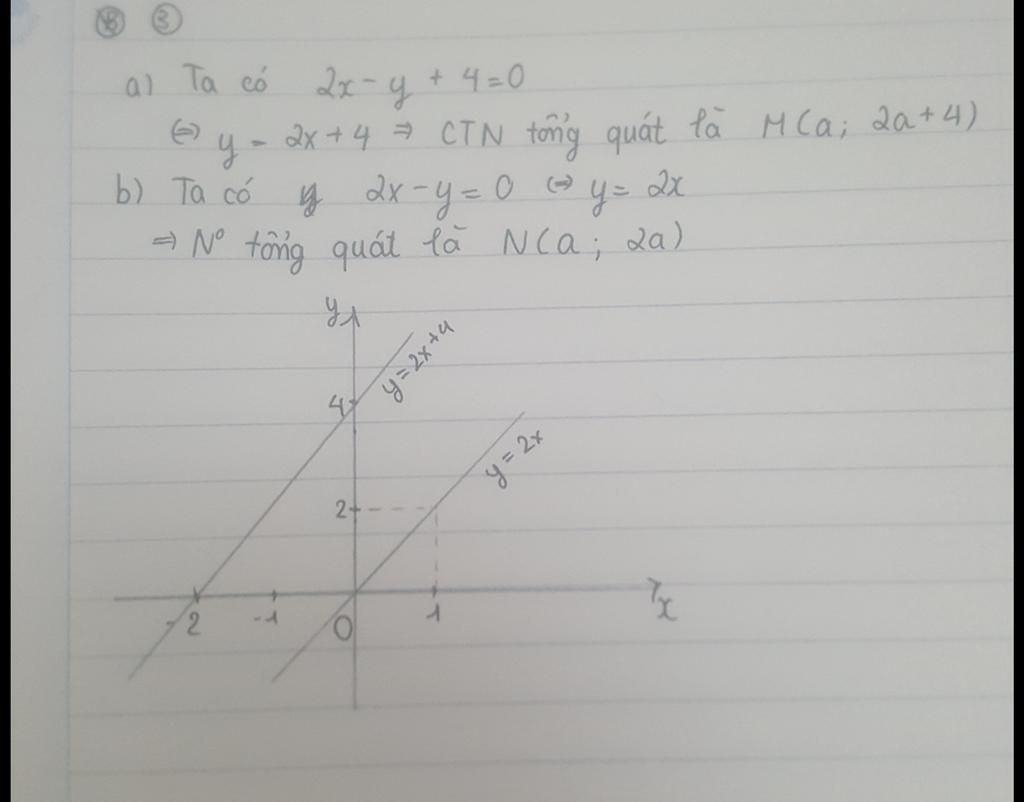 ③
a) Ta có 2x - y + 4 = 0
⇔ y = 2x + 4 ⇒ CTN tổng quát là M(a; 2a+4)
b) Ta có 2x - y = 0 ⇔ y = 2x
⇒ N° tổng quát là N(a; 2a)
y
y = 2x+4
4
y = 2x
2
-2 -1 0 1 x